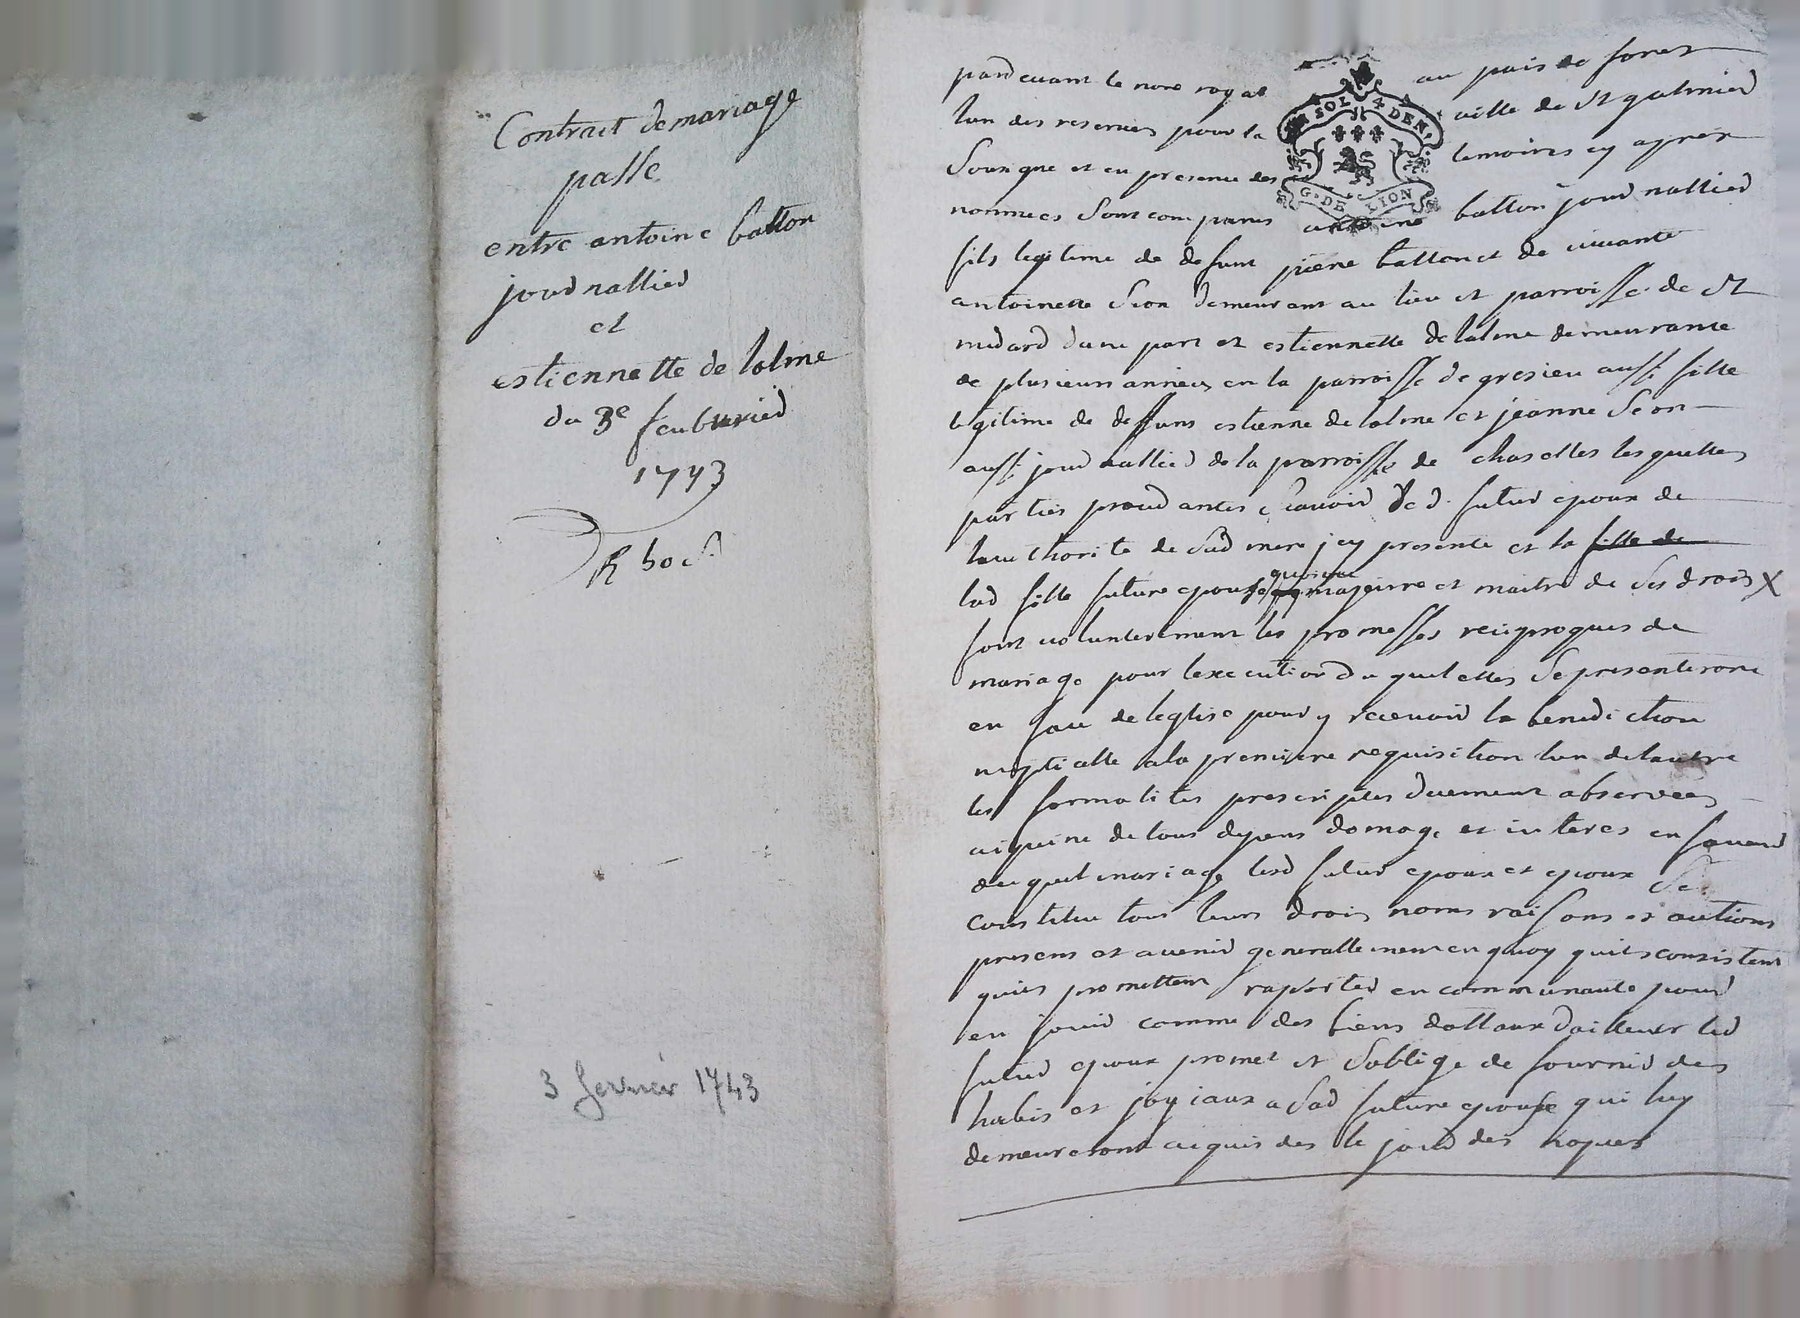 Contrat de mariage
passe
entre antoine batton
journallier
et
estiennette de lolme
du 3e feubvrier
1743
3 fevrier 1743
pardevant le nore royal au pais de forest
lun des reservés pour la ville de st galmier
SOL 4 DEN.
G. DE LION
Sousigne et en presence des temoins cy apres
nommes sont comparus antoine batton journallier
fils legitime de defunt piere batton et de vivante
antoinette Seon demeurant au lieu et parroisse de st
medard dune part et estiennette de lolme demeurante
de plusieurs annéés en la parroisse de gresieu aussi fille
legitime de deffunt estienne de lolme et jeanne Seon
aussi journallier de la parroisse de chaselles lesquelles
parties procedantes scavoir led. futur epoux de
lauthorite de sad mere icy presente et la fille de
lad fille future epouse majeurre et maitre de ses drois X
font volontairement les promesses reciproques de
mariage pour lexecution du quel elles se presenteront
en face de leglise pour y recevoir la benediction
nuptialle a la premiere requisition lun de lautre
les formalites prescriptes duement observeés
a peine de tous depens domage et interes en faveur
du quel mariage lesd futur epoux et epoux se
constitue tous leurs drois noms raisons et actions
presens et avenir generallement en quoy quils consistent
quils promettent raporter en communauté pour
en jouir comme des biens dottaux dailleur led
futur epoux promet et soblige de fournir des
habis et joyiaux a sad future epouse qui luy
demeureront acquis des le jour des noces